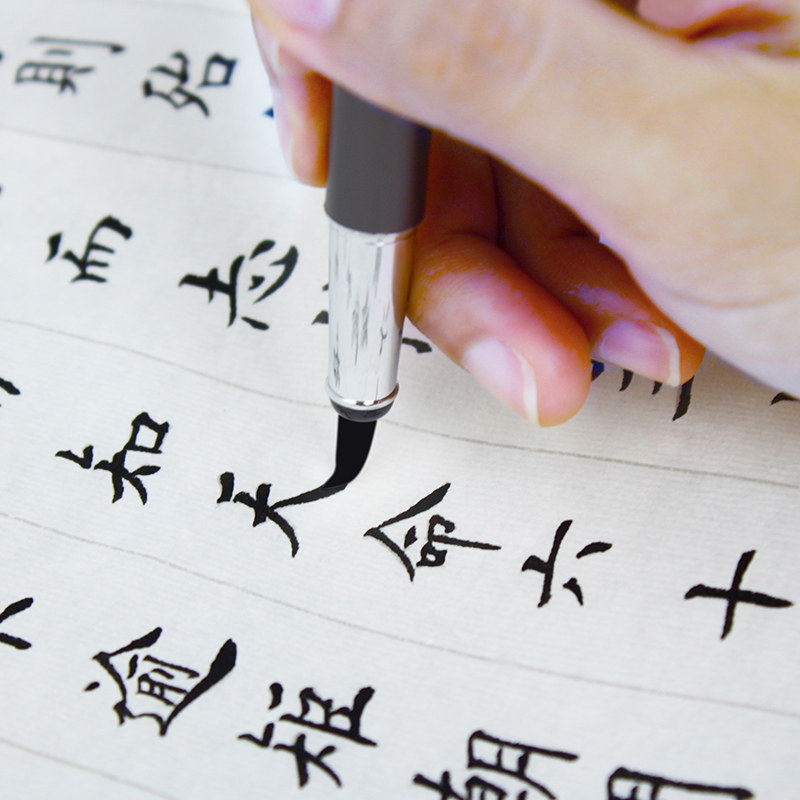 則殆
而志
知天命六十
逾矩朝